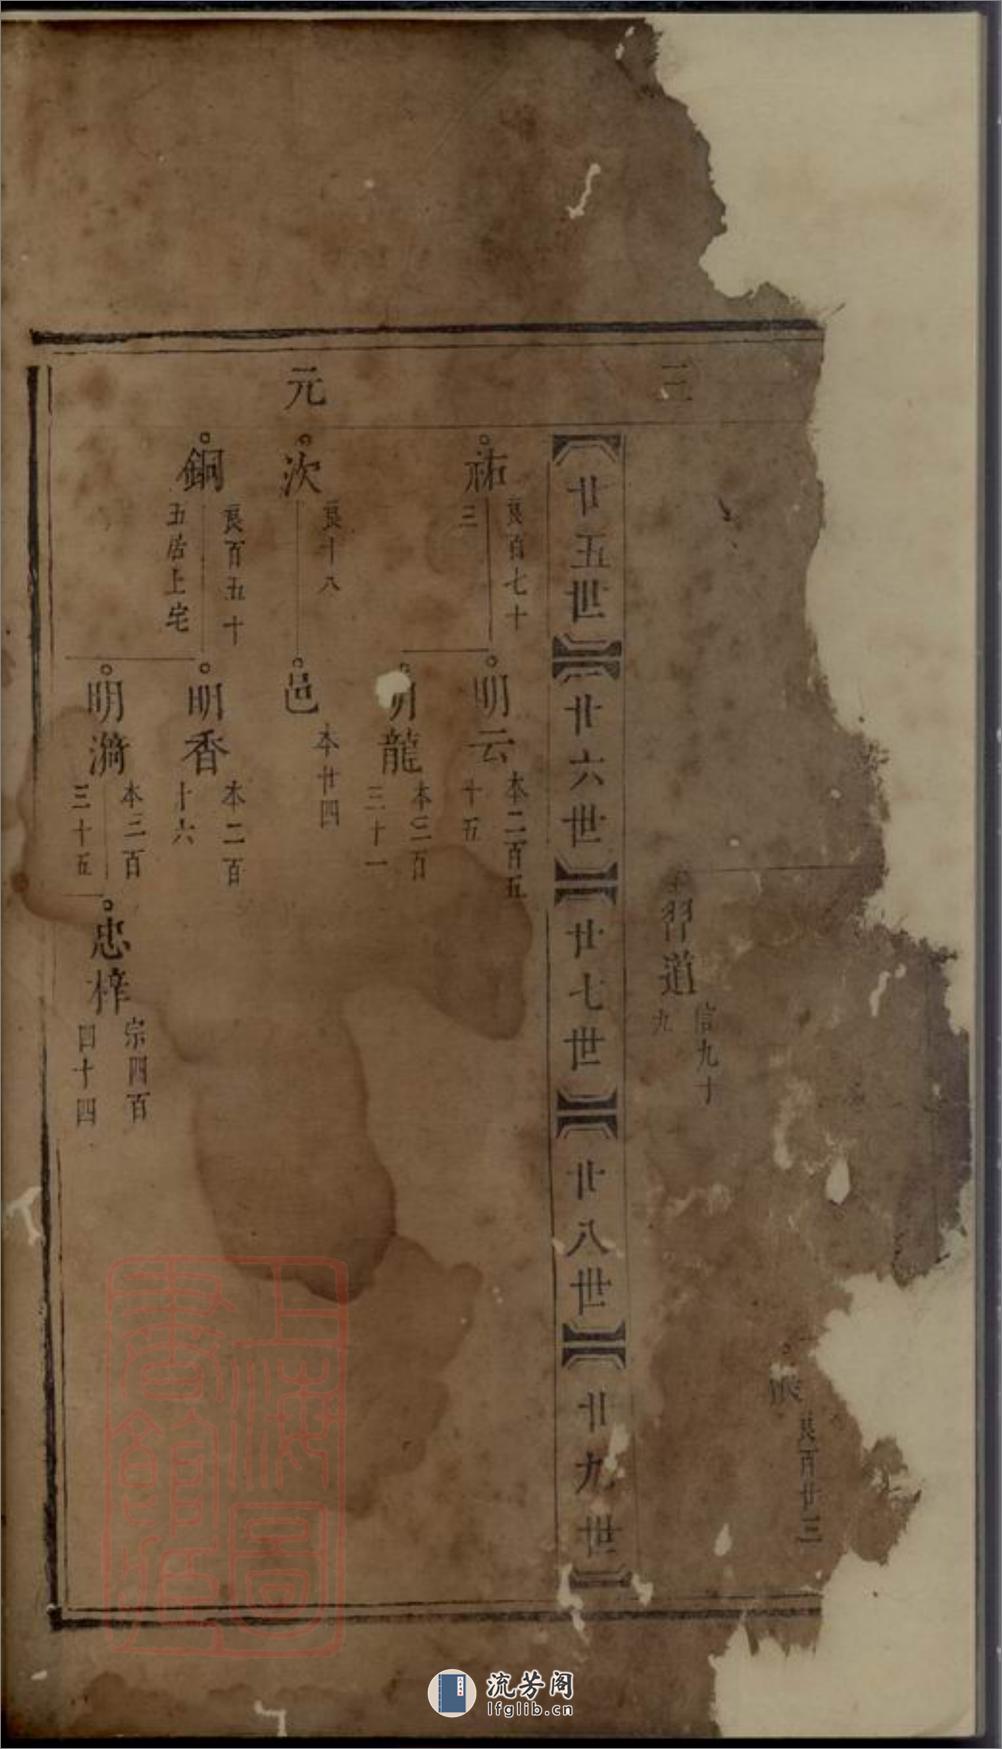 三
習道
信九十
九
良百廿三
【廿五世】【廿六世】【廿七世】【廿八世】【廿九世】
祐
良百七十
三
明云
本二百五
十五
龍
本三百
三十一
元
次
良十八
邑
本廿四
銅
良百五十
五居上宅
明香
本二百
十六
明漪
本三百
三十五
忠梓
宗四百
四十四
上海圖
書館藏
流芳阁
lfglib.cn